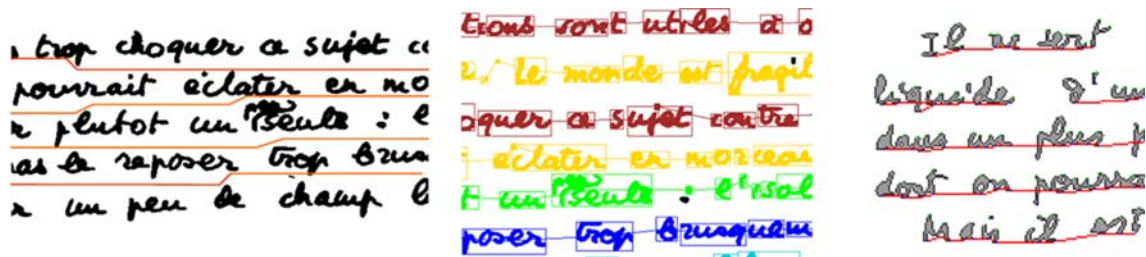 trop choquer ce sujet co
pourrait éclater en mo
plutot un seule : l
pas le reposer trop brus
un peu de champ l
tions sont utiles à o
le monde est fragil
oquer ce sujet contre
éclater en morceau
t un seule : l'isol
poser trop brusquem
Il ne sert
liquide d'un
dans un plus p
dont on pourra
Mais il est